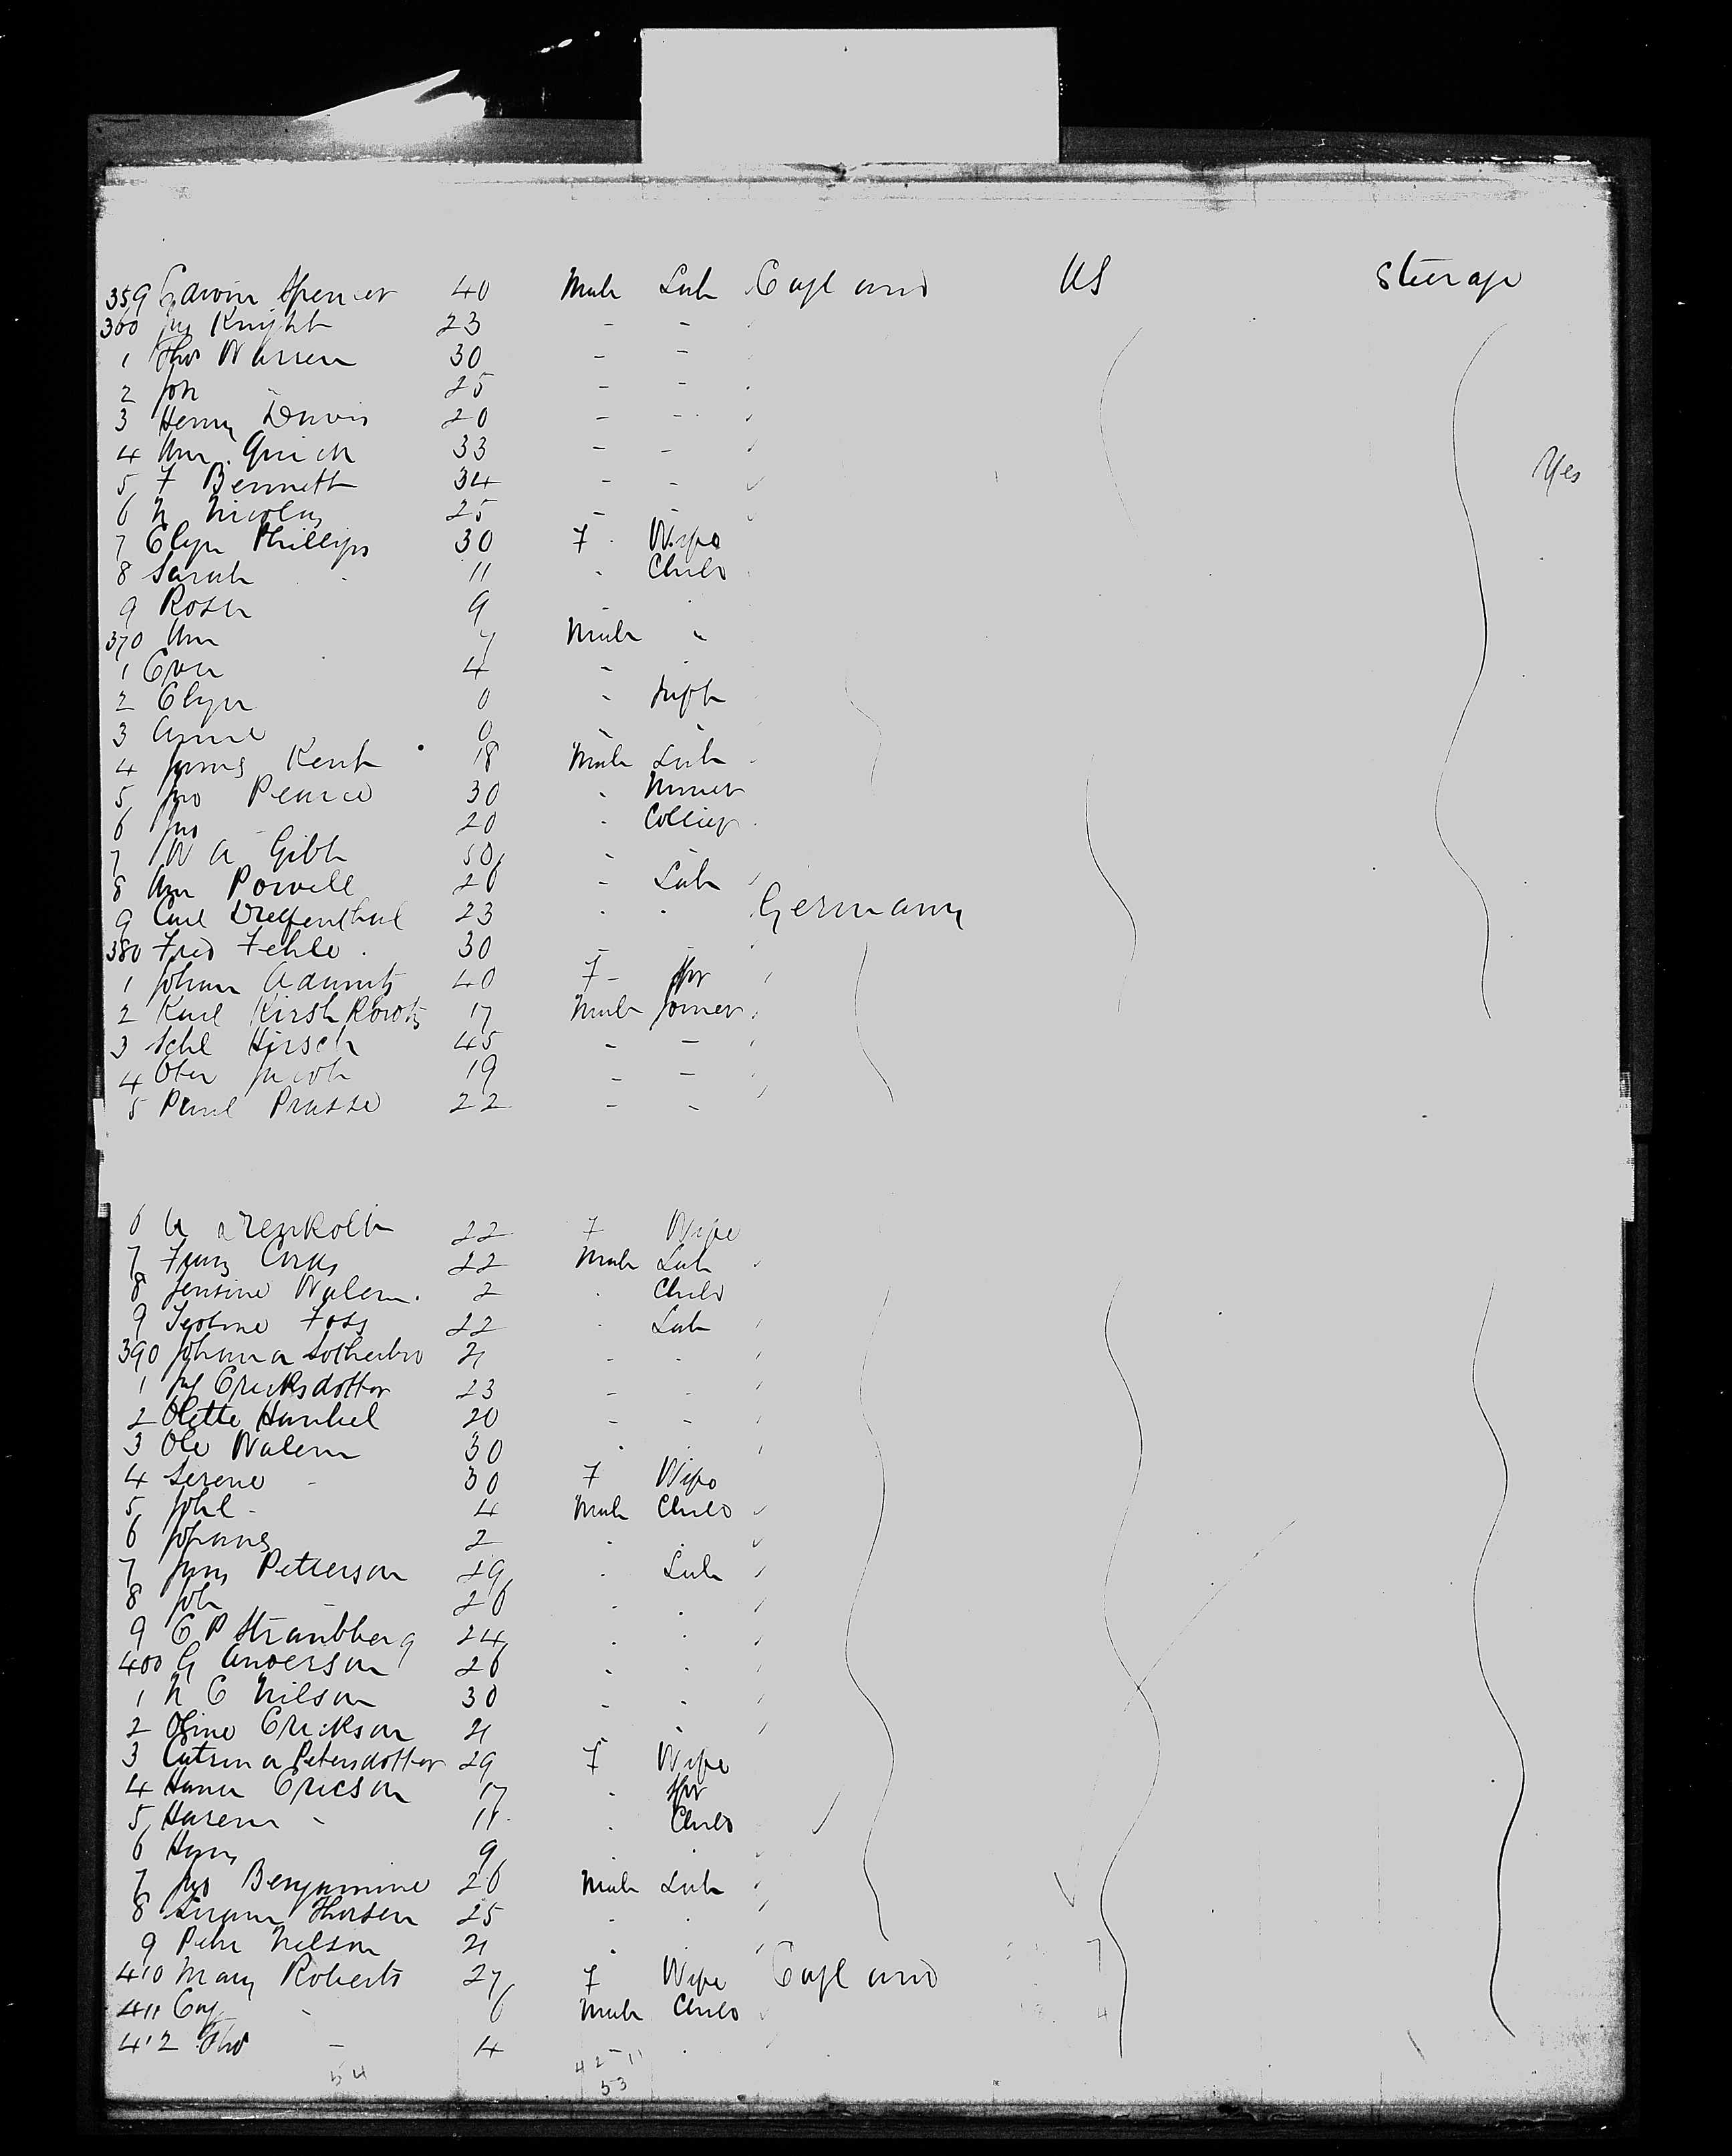 359 Edwin Spencer 40 Male Lab England US Steerage
360 Jas Knight 23 - -
1 Thos Warren 30 - -
2 Joh 25 - -
3 Henry Davis 20 - -
4 Wm 33 - -
5 F Bennett 34 - - Yes
6 N Nicolas 25 - -
7 Eliza Phillips 30 F Wife
8 Sarah 11 Child
9 Rosa 9
370 Wm 7 Male "
1 Eva 4
2 Eliza 0 Inft
3 Annie 0
4 James Kent 18 Male Lab
5 Jno Pearce 30 Miner
6 Jno 20 Collier
7 W A Gibb 50
8 Wm Powell 26 - Lab
9 Carl 23 Germany
380 Fred Fehle 30 -
1 Johan 40 F - Spr
2 Karl 17 Male Joiner
3 Schl Hirsch 45 - -
4 Jacob 19 - -
5 Paul Prasse 22 -
6 22 F Wife
7 Franz 22 Male Lab
8 Jensine Walem 2 Child
9 Foss 22 Lab
390 Johanna 21
1 Ericksdotter 23 -
2 Olette 20 - -
3 Ole Walem 30
4 Serene - 30 F Wife
5 Johl - 4 Male Child
6 Johannes 2
7 Jons Petterson 29 Lab
8 Joh 26
9 C P Strandberg 24
400 G Anderson 26
1 N C Nilson 30
2 Oline Erickson 21
3 Catrina Petersdotter 29 F Wife
4 Hanna Ericson 17 Spr
5 - 11 Child
6 Hans 9
7 Jno Benjamine 26 Male Lab
8 25
9 Peter Nelson 21
410 Mary Roberts 27 F Wife England 7
411 - 6 Male Child 4
412 Tho - 4
54 42-11
53